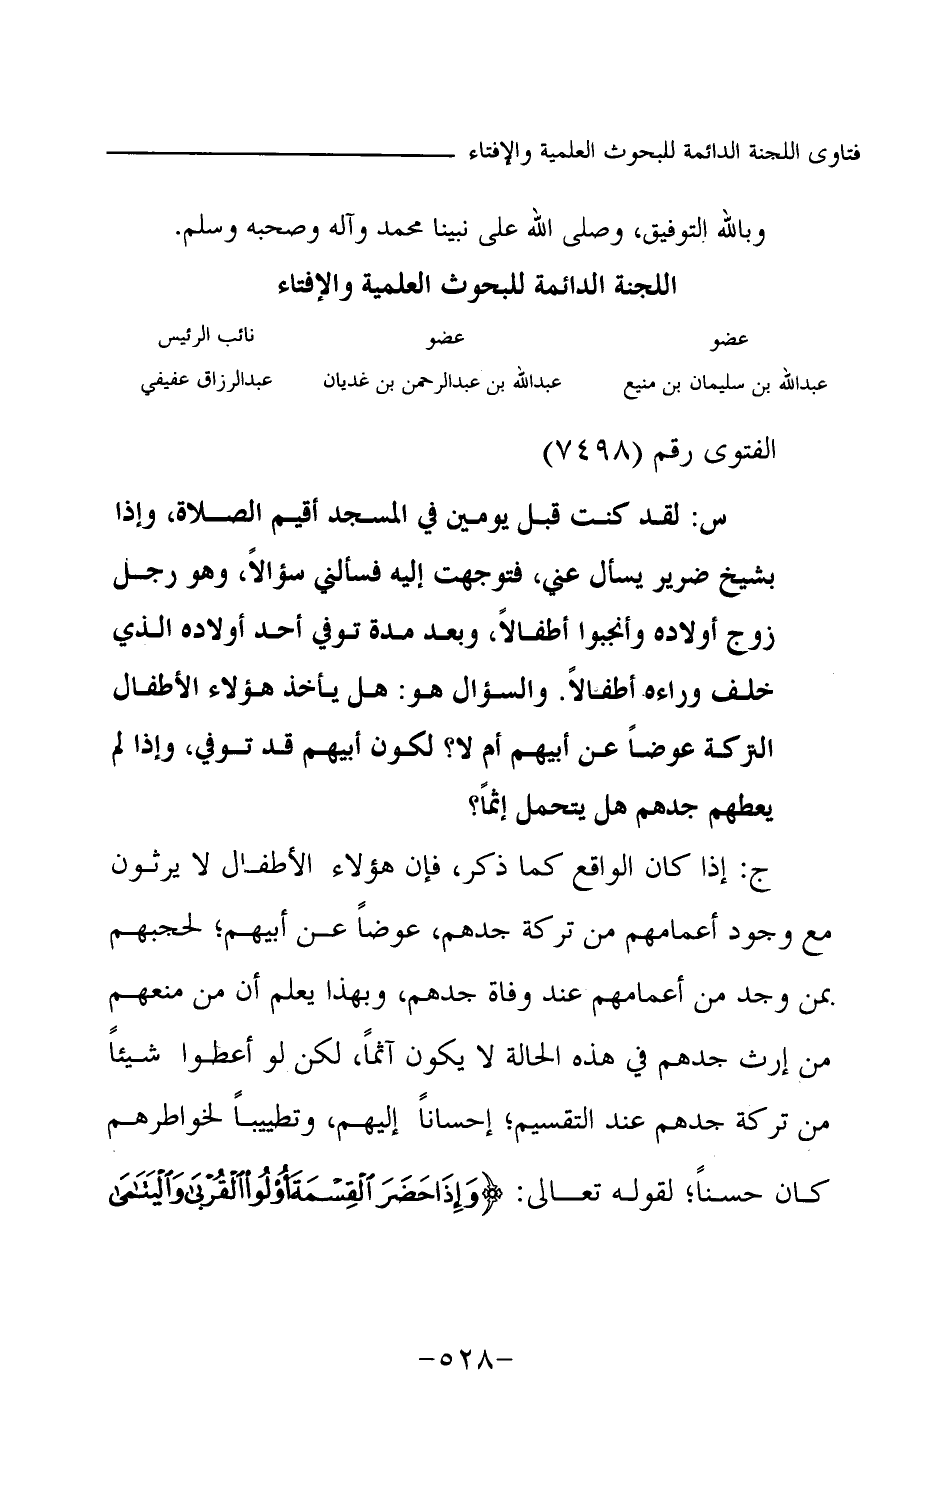 فتاوى اللجنة الدائمة للبحوث العلمية والإفتاء
وبالله التوفيق، وصلى الله على نبينا محمد وآله وصحبه وسلم.
اللجنة الدائمة للبحوث العلمية والإفتاء
عضو عضو نائب الرئيس
عبدالله بن سليمان بن منيع عبدالله بن عبدالرحمن بن غديان عبدالرزاق عفيفي
الفتوى رقم (٧٤٩٨)
س: لقد كنت قبل يومين في المسجد أقيم الصلاة، وإذا
بشيخ ضرير يسأل عني، فتوجهت إليه فسألني سؤالاً، وهو رجل
زوج أولاده وأنجبوا أطفالاً، وبعد مدة توفي أحد أولاده الذي
خلف وراءه أطفالاً. والسؤال هو: هل يأخذ هؤلاء الأطفال
التركة عوضاً عن أبيهم أم لا؟ لكون أبيهم قد توفي، وإذا لم
يعطهم جدهم هل يتحمل إثماً؟
ج: إذا كان الواقع كما ذكر، فإن هؤلاء الأطفال لا يرثون
مع وجود أعمامهم من تركة جدهم، عوضاً عن أبيهم؛ لحجبهم
بمن وجد من أعمامهم عند وفاة جدهم، وبهذا يعلم أن من منعهم
من إرث جدهم في هذه الحالة لا يكون آثماً، لكن لو أعطوا شيئاً
من تركة جدهم عند التقسيم؛ إحساناً إليهم، وتطييباً لخواطرهم
كان حسناً؛ لقوله تعالى: ﴿وَإِذَا حَضَرَ ٱلْقِسْمَةَ أُوْلُواْ ٱلْقُرْبَىٰ وَٱلْيَتَٰمَىٰ
-٥٢٨-